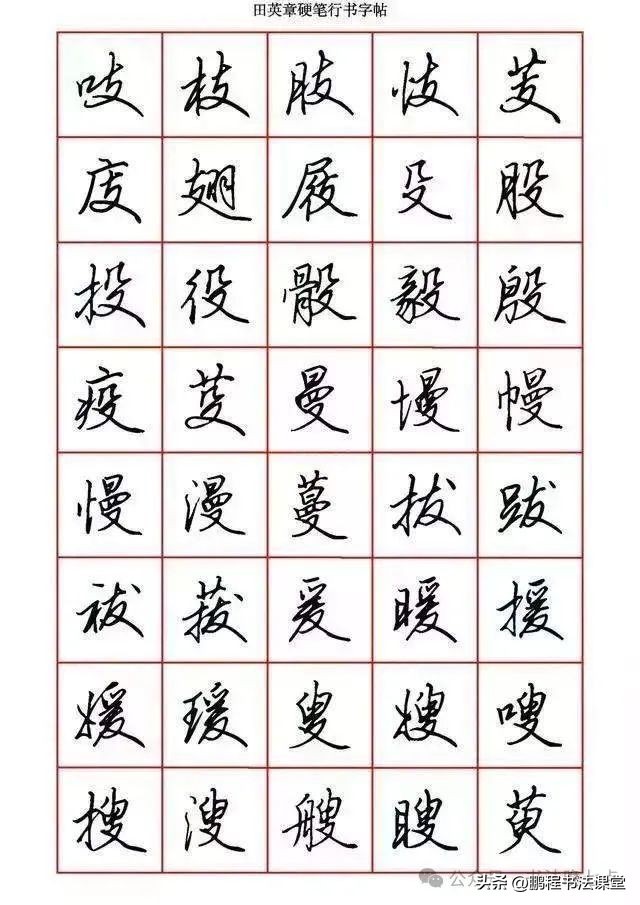 田英章硬笔行书字帖
吱 枝 肢 忮 芰
庋 翅 屐 殳 股
投 役 骰 毅 殷
疫 芟 曼 墁 幔
慢 漫 蔓 拔 跋
祓 菝 爰 暖 援
媛 瑗 叟 嫂 嗖
搜 溲 艘 瞍 萸
头条 @鹏程书法课堂